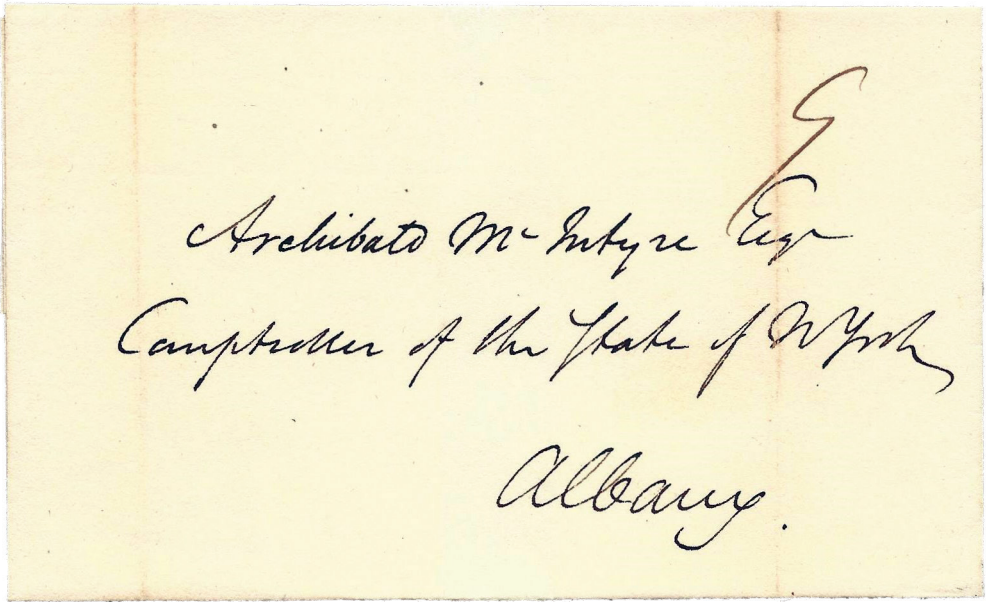 Archibald McIntyre Esqr
Comptroller of the State of N York
Albany.